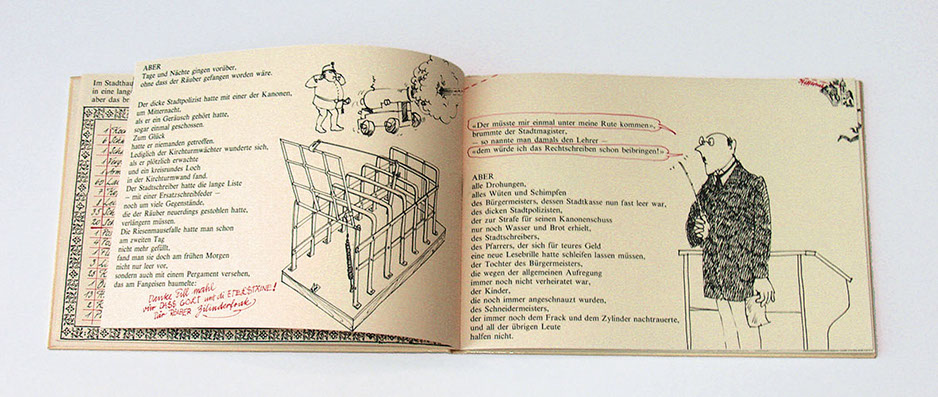 Im Stadthau
in eine lange
aber das br
ABER
Tage und Nächte gingen vorüber,
ohne dass der Räuber gefangen worden wäre.
Der dicke Stadtpolizist hatte mit einer der Kanonen,
um Mitternacht,
als er ein Geräusch gehört hatte,
sogar einmal geschossen.
Zum Glück
hatte er niemanden getroffen.
Lediglich der Kirchturmwächter wunderte sich,
als er plötzlich erwachte
und ein kreisrundes Loch
in der Kirchturmwand fand.
Der Stadtschreiber hatte die lange Liste
– mit einer Ersatzschreibfeder –
noch um viele Gegenstände,
die der Räuber neuerdings gestohlen hatte,
verlängern müssen.
Die Riesenmausefalle hatte man schon
am zweiten Tag
nicht mehr gefüllt,
fand man sie doch am frühen Morgen
nicht nur leer vor,
sondern auch mit einem Pergament versehen,
das am Fangeisen baumelte:
Danke Fill mahl
GOLT und die ETELSTAINE!
RÄUBER Zilinderfrak
«Der müsste mir einmal unter meine Rute kommen»,
brummte der Stadtmagister,
– so nannte man damals den Lehrer –
«dem würde ich das Rechtschreiben schon beibringen!»
ABER
alle Drohungen,
alles Wüten und Schimpfen
des Bürgermeisters, dessen Stadtkasse nun fast leer war,
des dicken Stadtpolizisten,
der zur Strafe für seinen Kanonenschuss
nur noch Wasser und Brot erhielt,
des Stadtschreibers,
des Pfarrers, der sich für teures Geld
eine neue Lesebrille hatte schleifen lassen müssen,
der Tochter des Bürgermeisters,
die wegen der allgemeinen Aufregung
immer noch nicht verheiratet war,
der Kinder,
die noch immer angeschnauzt wurden,
des Schneidermeisters,
der immer noch dem Frack und dem Zylinder nachtrauerte,
und all der übrigen Leute
halfen nicht.